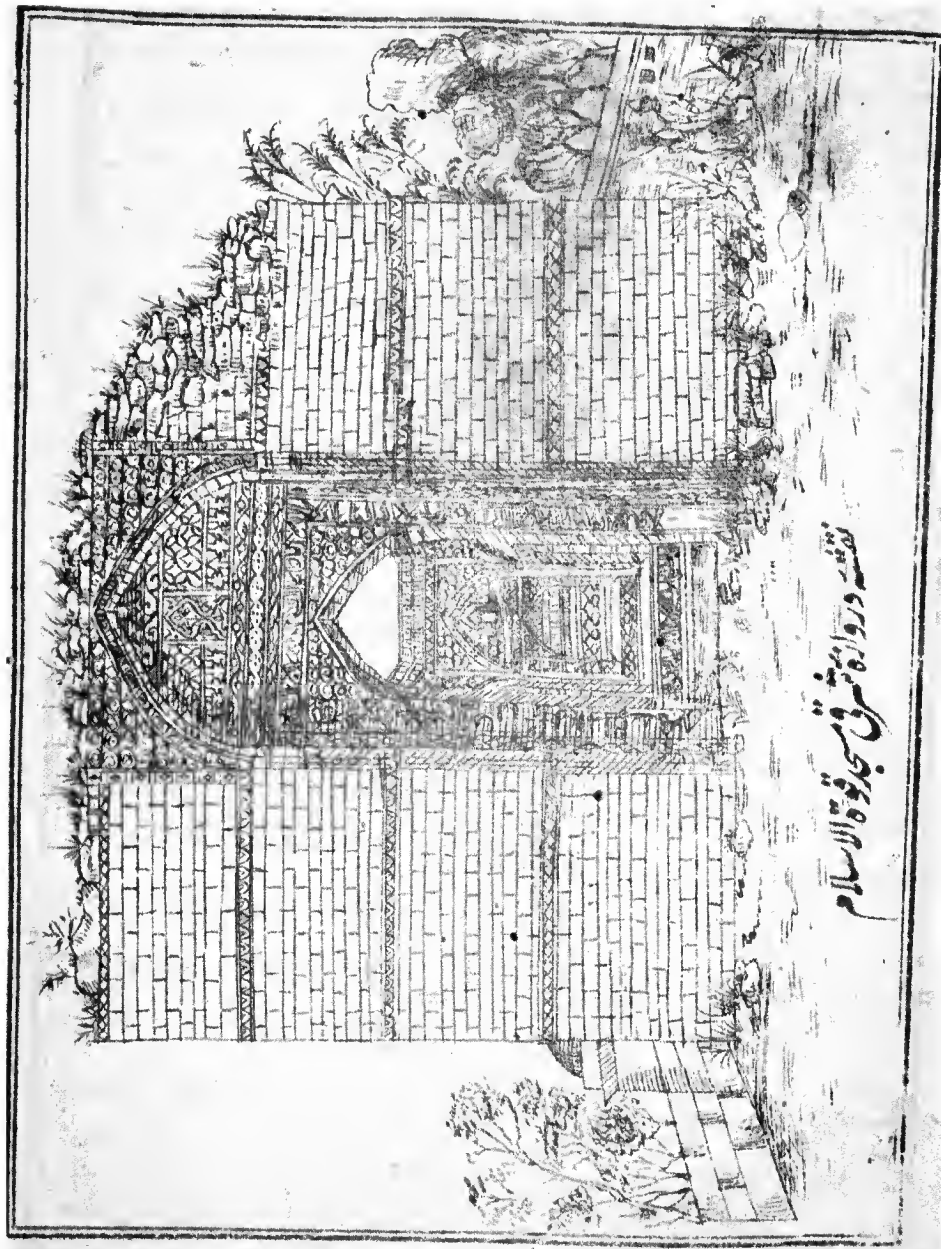 نقشہ دروازہ شرقی مسجد قوة الاسلام